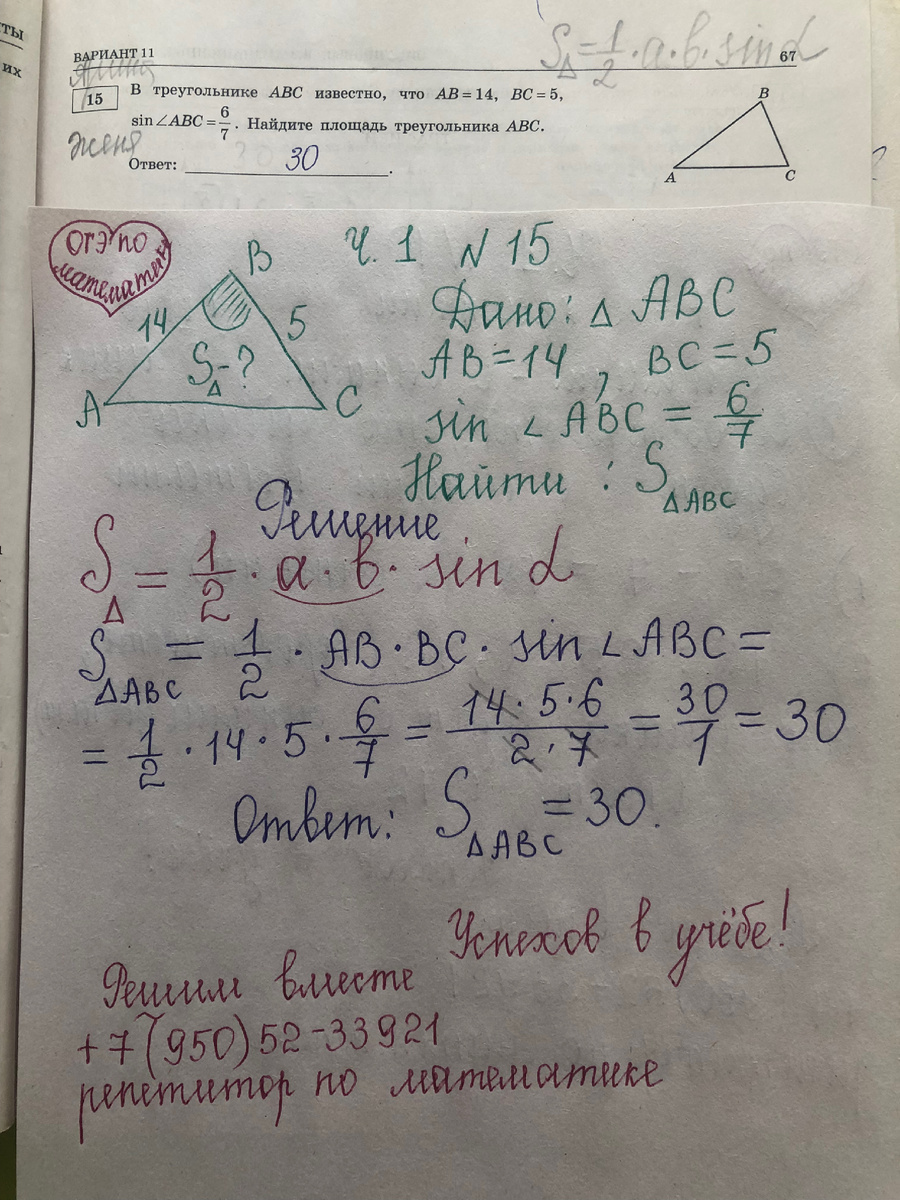 ты
их
S△ = 1/2 · a · b · sin α
ВАРИАНТ 11
67
Алина
15
В треугольнике ABC известно, что AB = 14, BC = 5,
sin∠ABC = 6/7. Найдите площадь треугольника ABC.
Женя
Ответ: 30.
B
A
C
ОГЭ по
математике
Ч. 1 N 15
B
14
5
S△-?
A
C
Дано: △ ABC
AB = 14, BC = 5
sin ∠ ABC = 6/7
Найти : S△ABC
Решение
S△ = 1/2 · a · b · sin α
S△ABC = 1/2 · AB · BC · sin ∠ ABC =
= 1/2 · 14 · 5 · 6/7 = 14 · 5 · 6/2 · 7 = 30/1 = 30
Ответ: S△ABC = 30.
Успехов в учёбе!
Решим вместе
+7(950)52-33921
репетитор по математике